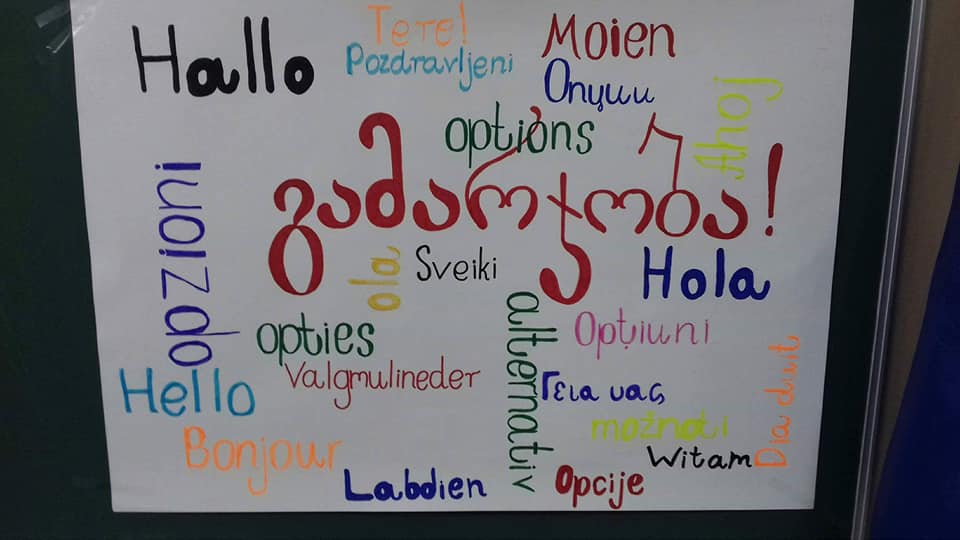 Hallo
Tere!
Pozdravljeni
Moien
Опции
Ahoj
options
გამარჯობა!
opzioni
ola
Sveiki
Hola
opties
alternativ
Opțiuni
Valgmulineder
Hello
Γεια υας
Dia duit
možnoti
Bonjour
Witam
Labdien
Opcije